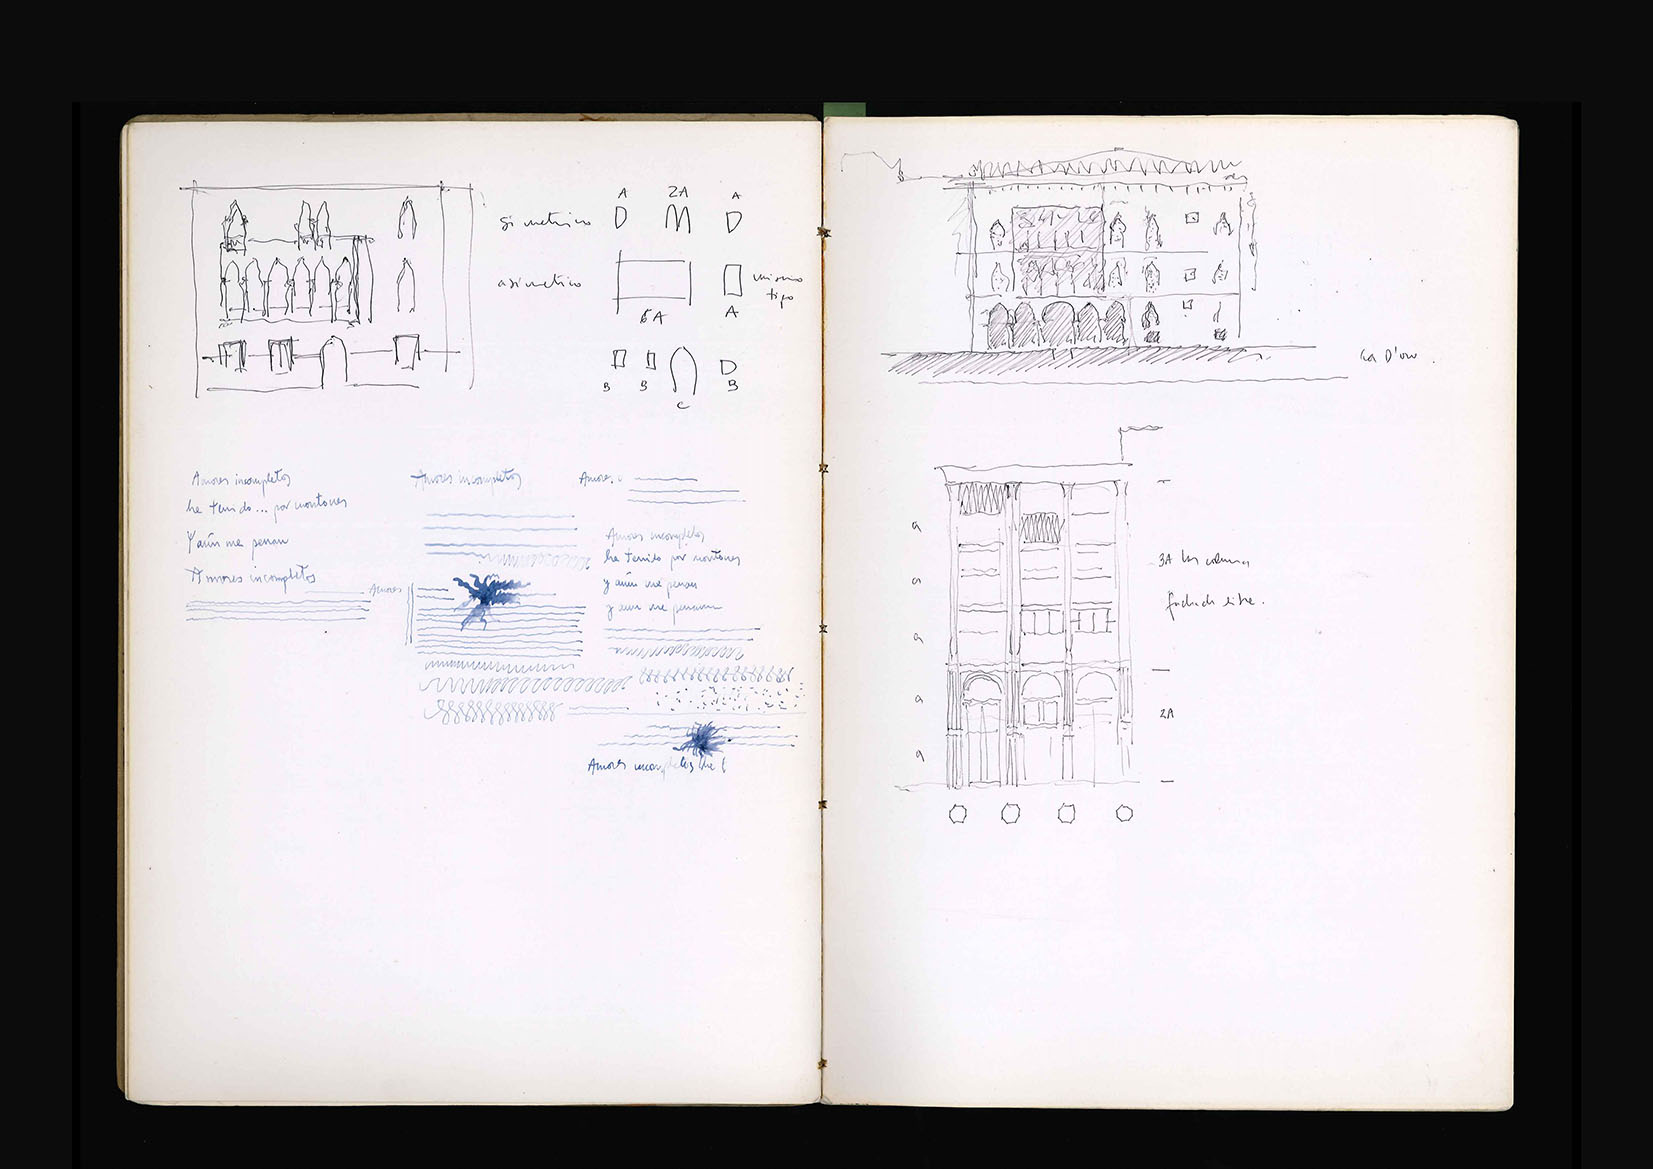 A 2A A
simetrico
asimetrico
mismo
tipo
6A A
B B C B
Amores incompletos
he tenido... por montones
Y aún me penan
Amores incompletos
Amores incompletos
Amores
Amores.
Amores incompletos
he tenido por montones
y aún me penan
y aun me penan
Amores incompletos he
Ca D'oro.
a
a
a
a
a
3A las columnas
fachada libre.
2A